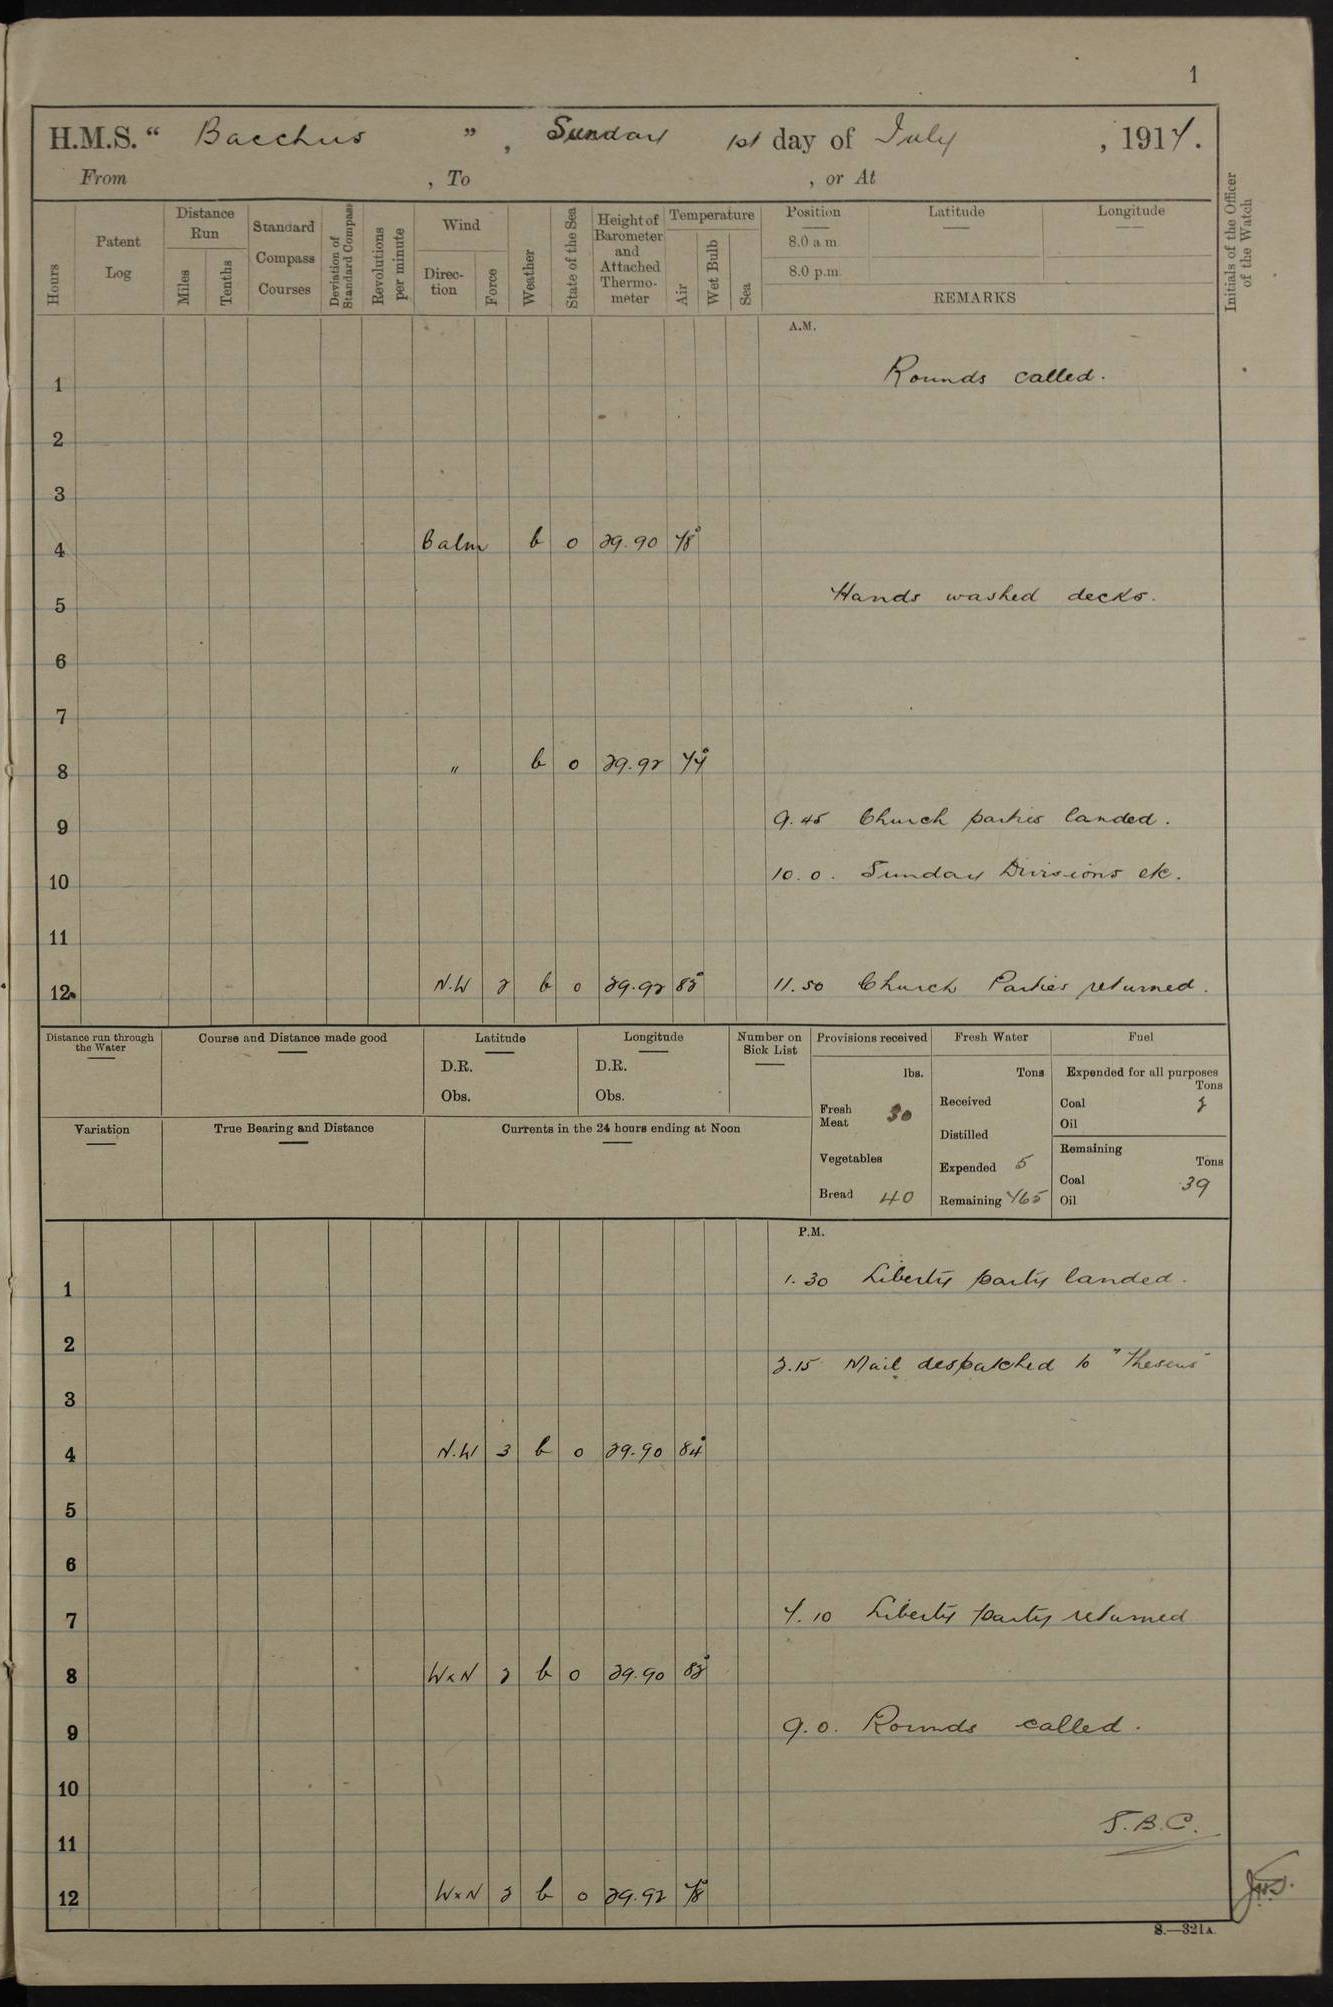 1
H.M.S. “ Bacchus ” , Sunday 1st day of July , 1917.
From , To , or At
Hours
Patent Log
Distance Run
Miles
Tenths
Standard Compass Courses
Deviation of Standard Compass
Revolutions per minute
Wind
Direction
Force
Weather
State of the Sea
Height of Barometer and Attached Thermometer
Temperature
Air
Wet Bulb
Sea
Position
8.0 a.m.
8.0 p.m.
Latitude
Longitude
REMARKS
Initials of the Officer of the Watch
A.M.
1 Rounds called.
2
3
4 Calm b 0 29.90 78°
5 Hands washed decks.
6
7
8 " b 0 29.92 77°
9 9.45 Church parties landed.
10 10.0. Sunday Divisions etc.
11
12 N.W 2 b 0 29.92 82° 11.50 Church Parties returned.
Distance run through the Water
Course and Distance made good
Latitude
D.R.
Obs.
Longitude
D.R.
Obs.
Number on Sick List
Provisions received
lbs.
Fresh Meat 30
Vegetables
Bread 40
Fresh Water
Tons
Received
Distilled
Expended 5
Remaining 765
Fuel
Expended for all purposes
Tons
Coal 2
Oil
Remaining
Tons
Coal 39
Oil
Variation
True Bearing and Distance
Currents in the 24 hours ending at Noon
P.M.
1 1.30 Liberty party landed.
2
2.15 Mail despatched to "Theseus"
3
4 N.W 3 b 0 29.90 84°
5
6
7 7.10 Liberty party returned
8 WxN 2 b 0 29.90 82°
9 9.0. Rounds called.
10
11 S.B.C.
12 WxN 2 b 0 29.92 78°
S.—321A.